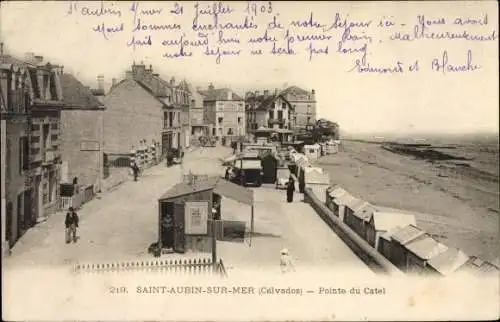 St Aubin s/ mer 21 juillet 1903.
Nous sommes enchantés de notre séjour ici. Nous avons
fait aujourd'hui notre premier bain, Malheureusement notre
séjour ne sera pas long.
Edmond et Blanche
219. SAINT-AUBIN-SUR-MER (Calvados) — Pointe du Catel